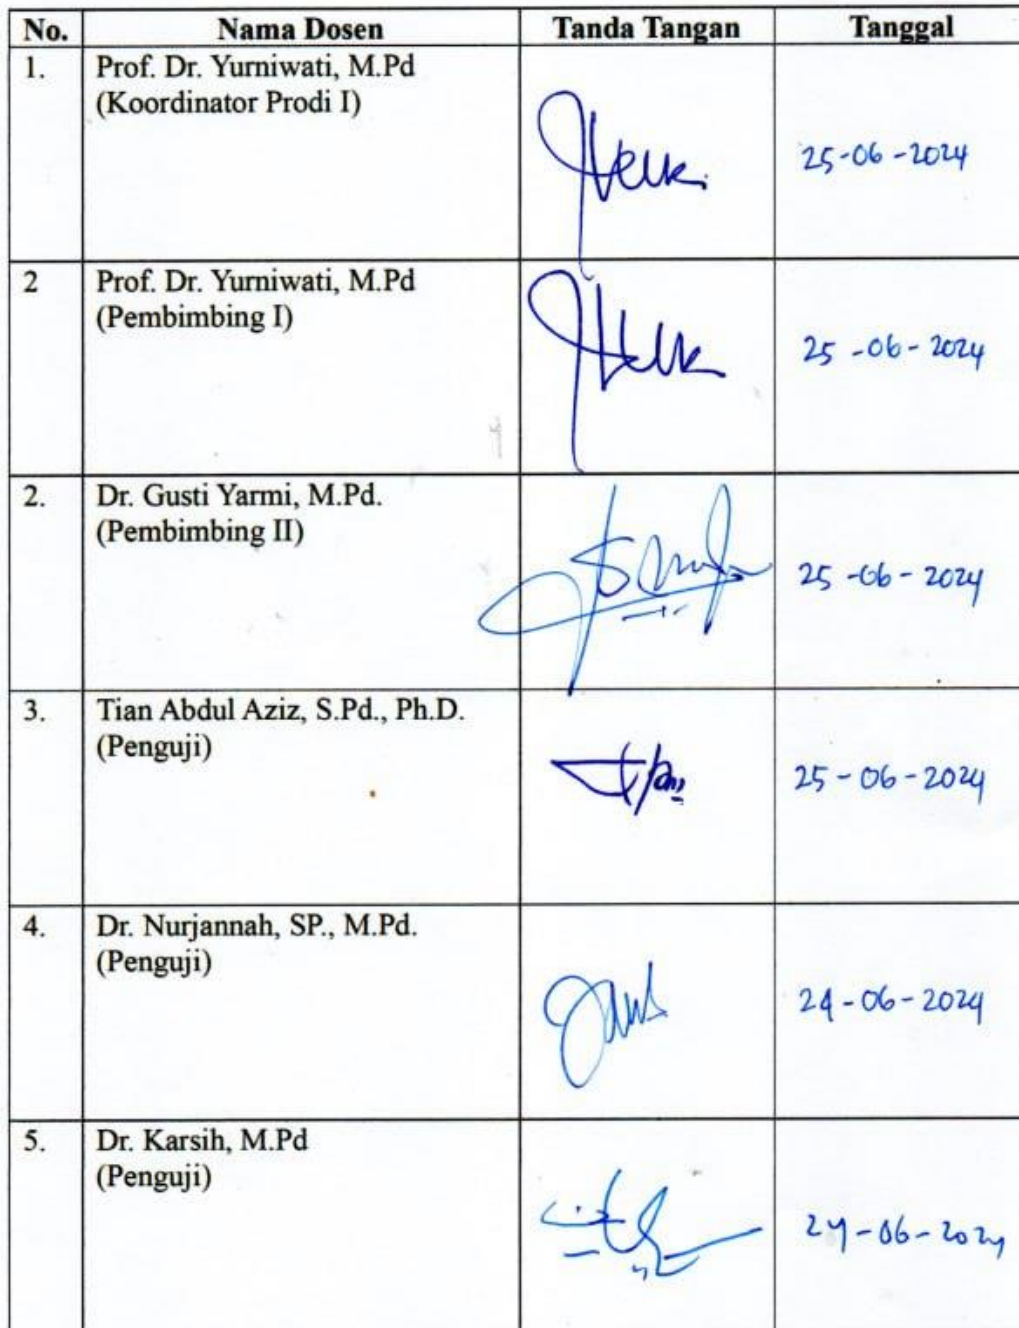 No. Nama Dosen Tanda Tangan Tanggal
1. Prof. Dr. Yurniwati, M.Pd
(Koordinator Prodi I)
25-06-2024
2 Prof. Dr. Yurniwati, M.Pd
(Pembimbing I)
25-06-2024
2. Dr. Gusti Yarmi, M.Pd.
(Pembimbing II)
25-06-2024
3. Tian Abdul Aziz, S.Pd., Ph.D.
(Penguji)
25-06-2024
4. Dr. Nurjannah, SP., M.Pd.
(Penguji)
24-06-2024
5. Dr. Karsih, M.Pd
(Penguji)
24-06-2024